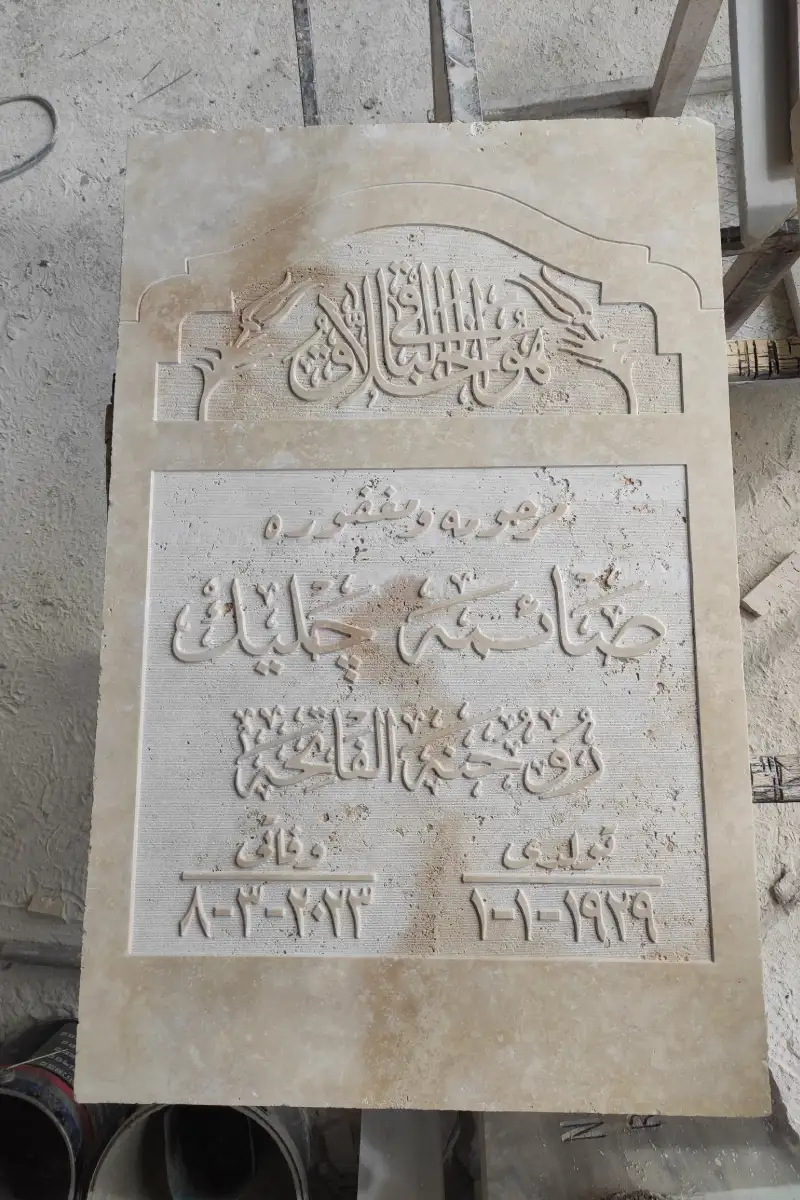 هو الخلاق الباقي
مرحومه ومغفوره
صَائمَه چَليك
رُوحِنَه الفَاتحَه
تولدى وفاتى
١-١-١٩٢٩ ٨-٣-٢٠٢٣